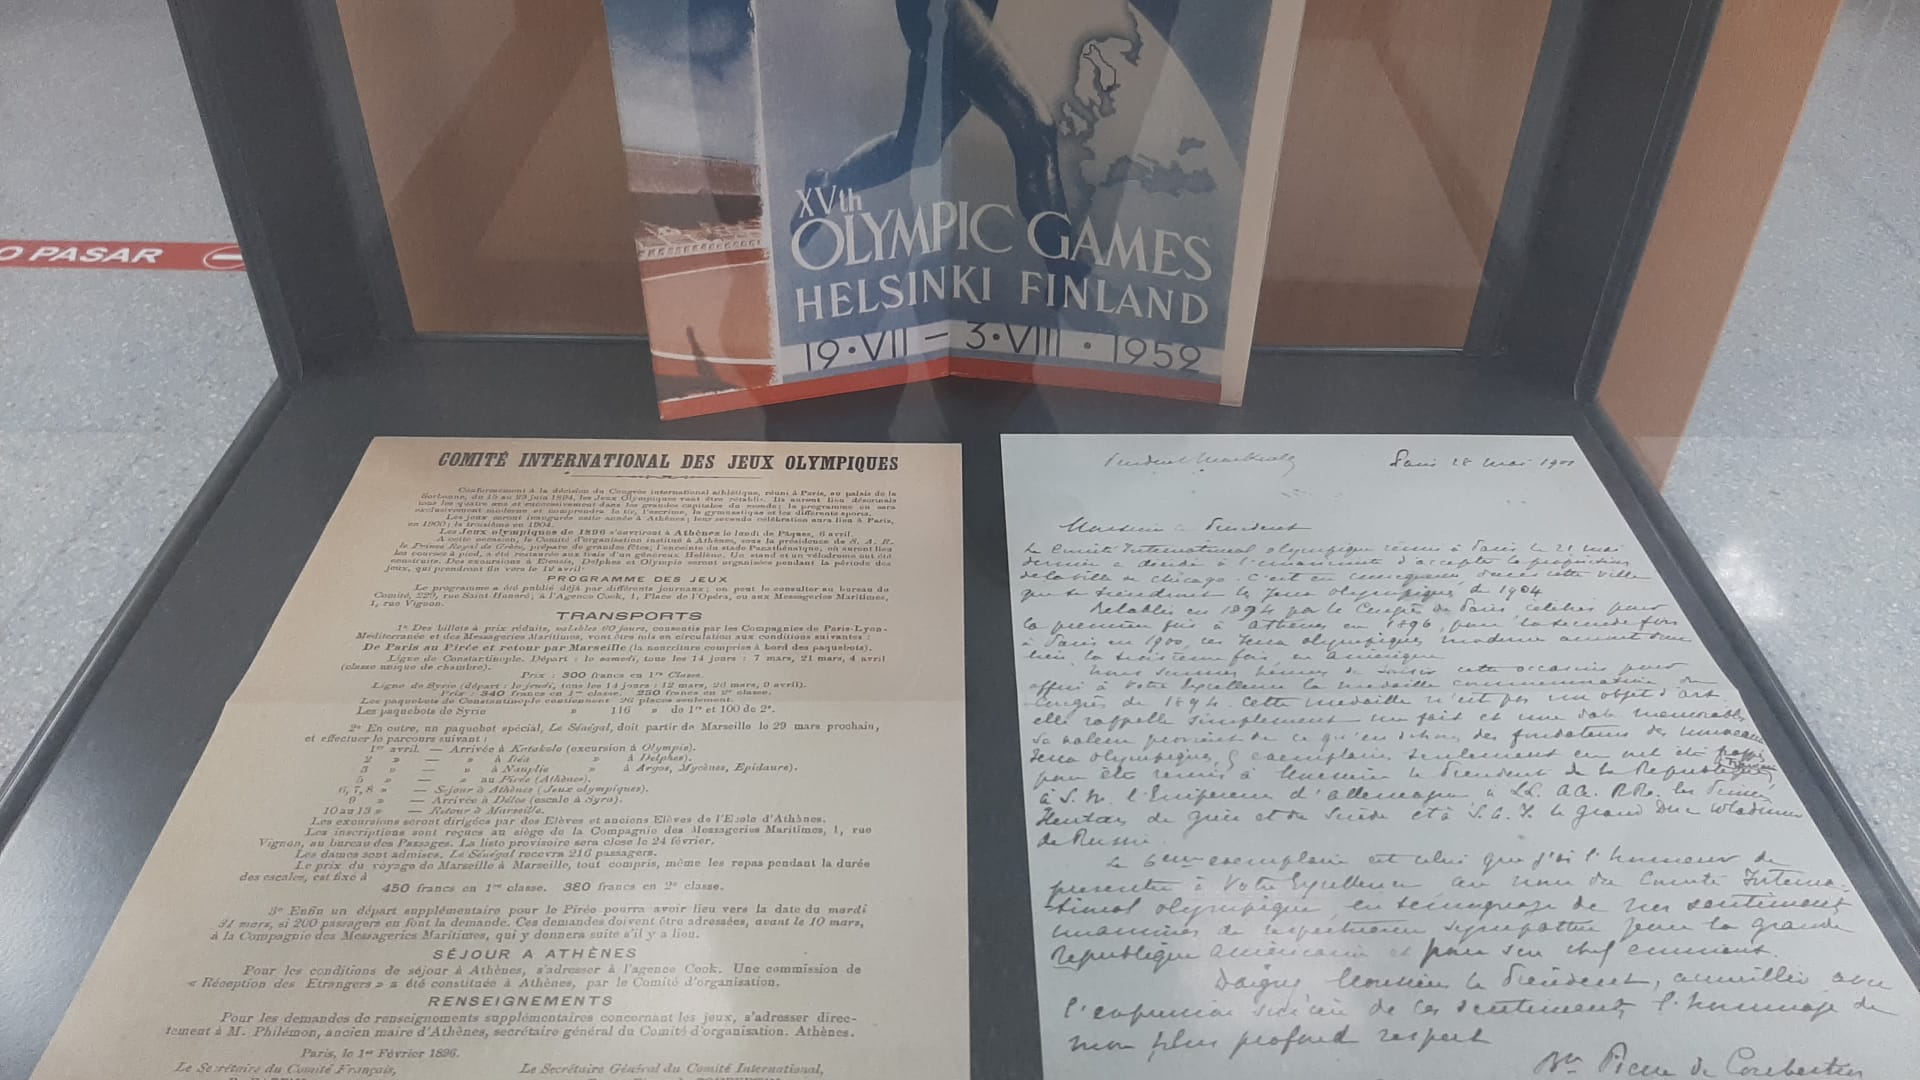 O PASAR
XVth
OLYMPIC GAMES
HELSINKI FINLAND
19·VII – 3·VIII · 1952
COMITÉ INTERNATIONAL DES JEUX OLYMPIQUES
Conformément à la décision du Congrès international athlétique, réuni à Paris, au palais de la
Sorbonne, du 15 au 23 juin 1894, les Jeux Olympiques vont être rétablis. Ils auront lieu désormais
tous les quatre ans et successivement dans les grandes capitales du monde; le programme en sera
exclusivement moderne et comprendra le tir, l'escrime, la gymnastique et les différents sports.
Les jeux seront inaugurés cette année à Athènes; leur seconde célébration aura lieu à Paris,
en 1900; la troisième en 1904.
Les Jeux olympiques de 1896 s'ouvriront à Athènes le lundi de Pâques, 6 avril.
A cette occasion, le Comité d'organisation institué à Athènes, sous la présidence de S. A. R.
le Prince Royal de Grèce, prépare de grandes fêtes; l'enceinte du stade Panathénaïque, où auront lieu
les courses à pied, a été restaurée aux frais d'un généreux Hellène. Un stand et un vélodrome ont été
construits. Des excursions à Eleusis, Delphes et Olympie seront organisées pendant la période des
jeux, qui prendront fin vers le 12 avril.
PROGRAMME DES JEUX
Le programme a été publié déjà par différents journaux; on peut le consulter au bureau du
Comité, 229, rue Saint-Honoré; à l'Agence Cook, 1, Place de l'Opéra, ou aux Messageries Maritimes,
1, rue Vignon.
TRANSPORTS
1° Des billets à prix réduits, valables 60 jours, consentis par les Compagnies de Paris-Lyon-
Méditerranée et des Messageries Maritimes, vont être mis en circulation aux conditions suivantes :
De Paris au Pirée et retour par Marseille (la nourriture comprise à bord des paquebots).
Ligne de Constantinople. Départ : le samedi, tous les 14 jours : 7 mars, 21 mars, 4 avril
(classe unique de chambre).
Prix : 300 francs en 1re Classe.
Ligne de Syrie (départ : le jeudi, tous les 14 jours : 12 mars, 26 mars, 9 avril).
Prix : 340 francs en 1re classe. 250 francs en 2e classe.
Les paquebots de Constantinople contiennent 26 places seulement.
Les paquebots de Syrie » 116 » de 1re et 100 de 2e.
2° En outre, un paquebot spécial, Le Sénégal, doit partir de Marseille le 29 mars prochain,
et effectuer le parcours suivant :
1er avril. — Arrivée à Katakolo (excursion à Olympie).
2 » — » à Itéa » à Delphes).
3 » — » à Nauplie » à Argos, Mycènes, Epidaure).
5 » — » au Pirée (Athènes).
6, 7, 8 » — Séjour à Athènes (Jeux olympiques).
9 » — Arrivée à Délos (escale à Syra).
10 au 13 » — Retour à Marseille.
Les excursions seront dirigées par des Elèves et anciens Elèves de l'Ecole d'Athènes.
Les inscriptions sont reçues au siège de la Compagnie des Messageries Maritimes, 1, rue
Vignon, au bureau des Passages. La liste provisoire sera close le 24 février.
Les dames sont admises. Le Sénégal recevra 216 passagers.
Le prix du voyage de Marseille à Marseille, tout compris, même les repas pendant la durée
des escales, est fixé à
450 francs en 1re classe. 380 francs en 2e classe.
3° Enfin un départ supplémentaire pour le Pirée pourra avoir lieu vers la date du mardi
31 mars, si 200 passagers en font la demande. Ces demandes doivent être adressées, avant le 10 mars,
à la Compagnie des Messageries Maritimes, qui y donnera suite s'il y a lieu.
SÉJOUR A ATHÈNES
Pour les conditions de séjour à Athènes, s'adresser à l'agence Cook. Une commission de
« Réception des Etrangers » a été constituée à Athènes, par le Comité d'organisation.
RENSEIGNEMENTS
Pour les demandes de renseignements supplémentaires concernant les jeux, s'adresser direc-
tement à M. Philémon, ancien maire d'Athènes, secrétaire général du Comité d'organisation. Athènes.
Paris, le 1er Février 1896.
Le Secrétaire du Comité Français, Le Secrétaire Général du Comité International,
Paris 28 mai 1901
Monsieur le Président
Le Comité International olympique réuni à Paris le 21 mai
dernier a décidé à l'unanimité d'accepter la proposition
de la ville de Chicago. C'est en conséquence dans cette ville
que se tiendront les Jeux olympiques de 1904
Rétablis en 1894 par le Congrès de Paris, célébrés pour
la première fois à Athènes en 1896, pour la seconde fois
à Paris en 1900, ces Jeux olympiques modernes auront donc
lieu la troisième fois, en Amérique.
Nous sommes heureux de saisir cette occasion pour
offrir à Votre Excellence la médaille commémorative du
Congrès de 1894. Cette médaille n'est pas un objet d'art.
elle rappelle simplement un fait et une date mémorables
Sa valeur provient de ce qu'en dehors des fondateurs des nouveaux
Jeux olympiques, 6 exemplaires seulement en ont été frappés
pour être remis à Monsieur le Président de la République
à S. M. l'Empereur d'Allemagne à LL. AA. RR. les Princes
Héritiers de Grèce et de Suède et à S. A. I. le Grand Duc Wladimir
de Russie.
Le 6ème exemplaire est celui que j'ai l'honneur de
présenter à Votre Excellence au nom du Comité Interna-
tional olympique, en témoignage de nos sentiments
unanimes de respectueuse sympathie pour la grande
république américaine et pour son chef éminent.
Daignez Monsieur le Président, accueillir avec
l'expression sincère de ces sentiments l'hommage de
mon plus profond respect
Bn Pierre de Coubertin